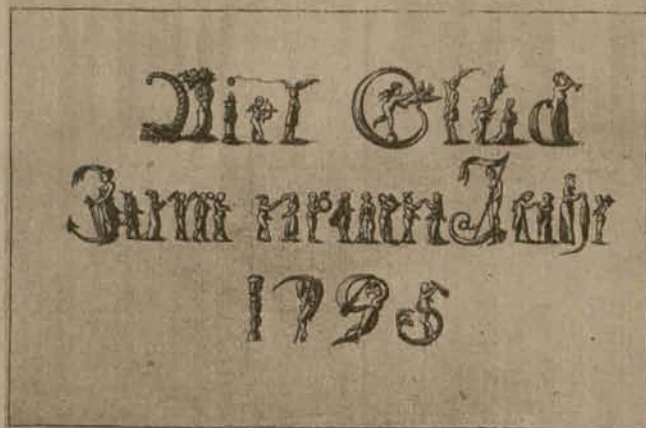 Viel Glück
Zum neuen Jahr
1795